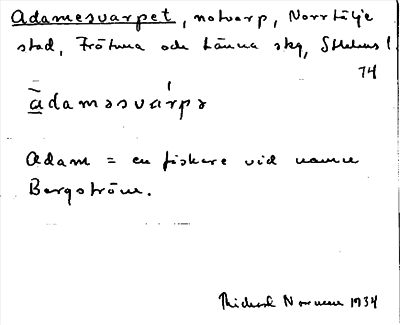 Adamesvarpet, notvarp, Norrtälje
stad, Frötuna och Länna skg, Sthlms l.
74
ādaməsvárpə
Adam = en fiskare vid namn
Bergström.
Richard Norman 1934